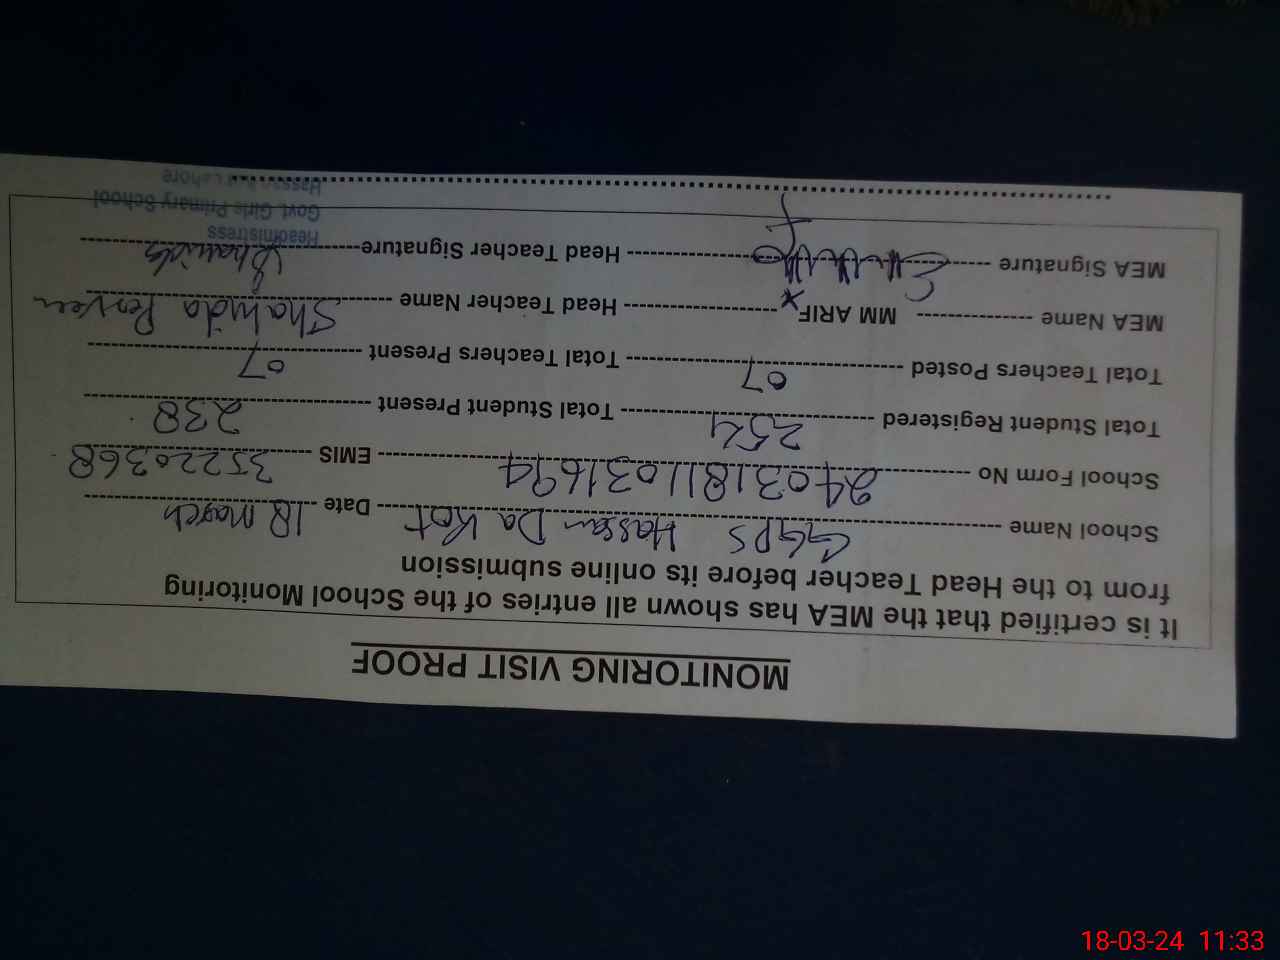 MONITORING VISIT PROOF
It is certified that the MEA has shown all entries of the School Monitoring
from to the Head Teacher before its online submission
School Name GGPS Hassan Da Kot Date 18 March
School Form No 24031811031694 EMIS 35220368
Total Student Registered 254 Total Student Present 238
Total Teachers Posted 07 Total Teachers Present 07
MEA Name MM ARIF Head Teacher Name Shahida Perveen
MEA Signature Head Teacher Signature Shahida
Headmistress
Govt. Girls Primary School
Lahore
18-03-24 11:33